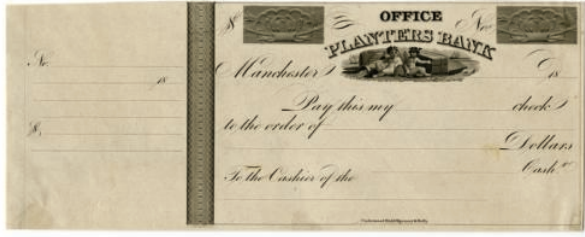 No.
18
$
$ OFFICE No.
PLANTERS BANK
Manchester 18
Pay this my check
to the order of
Dollars
To the Cashier of the Cash.